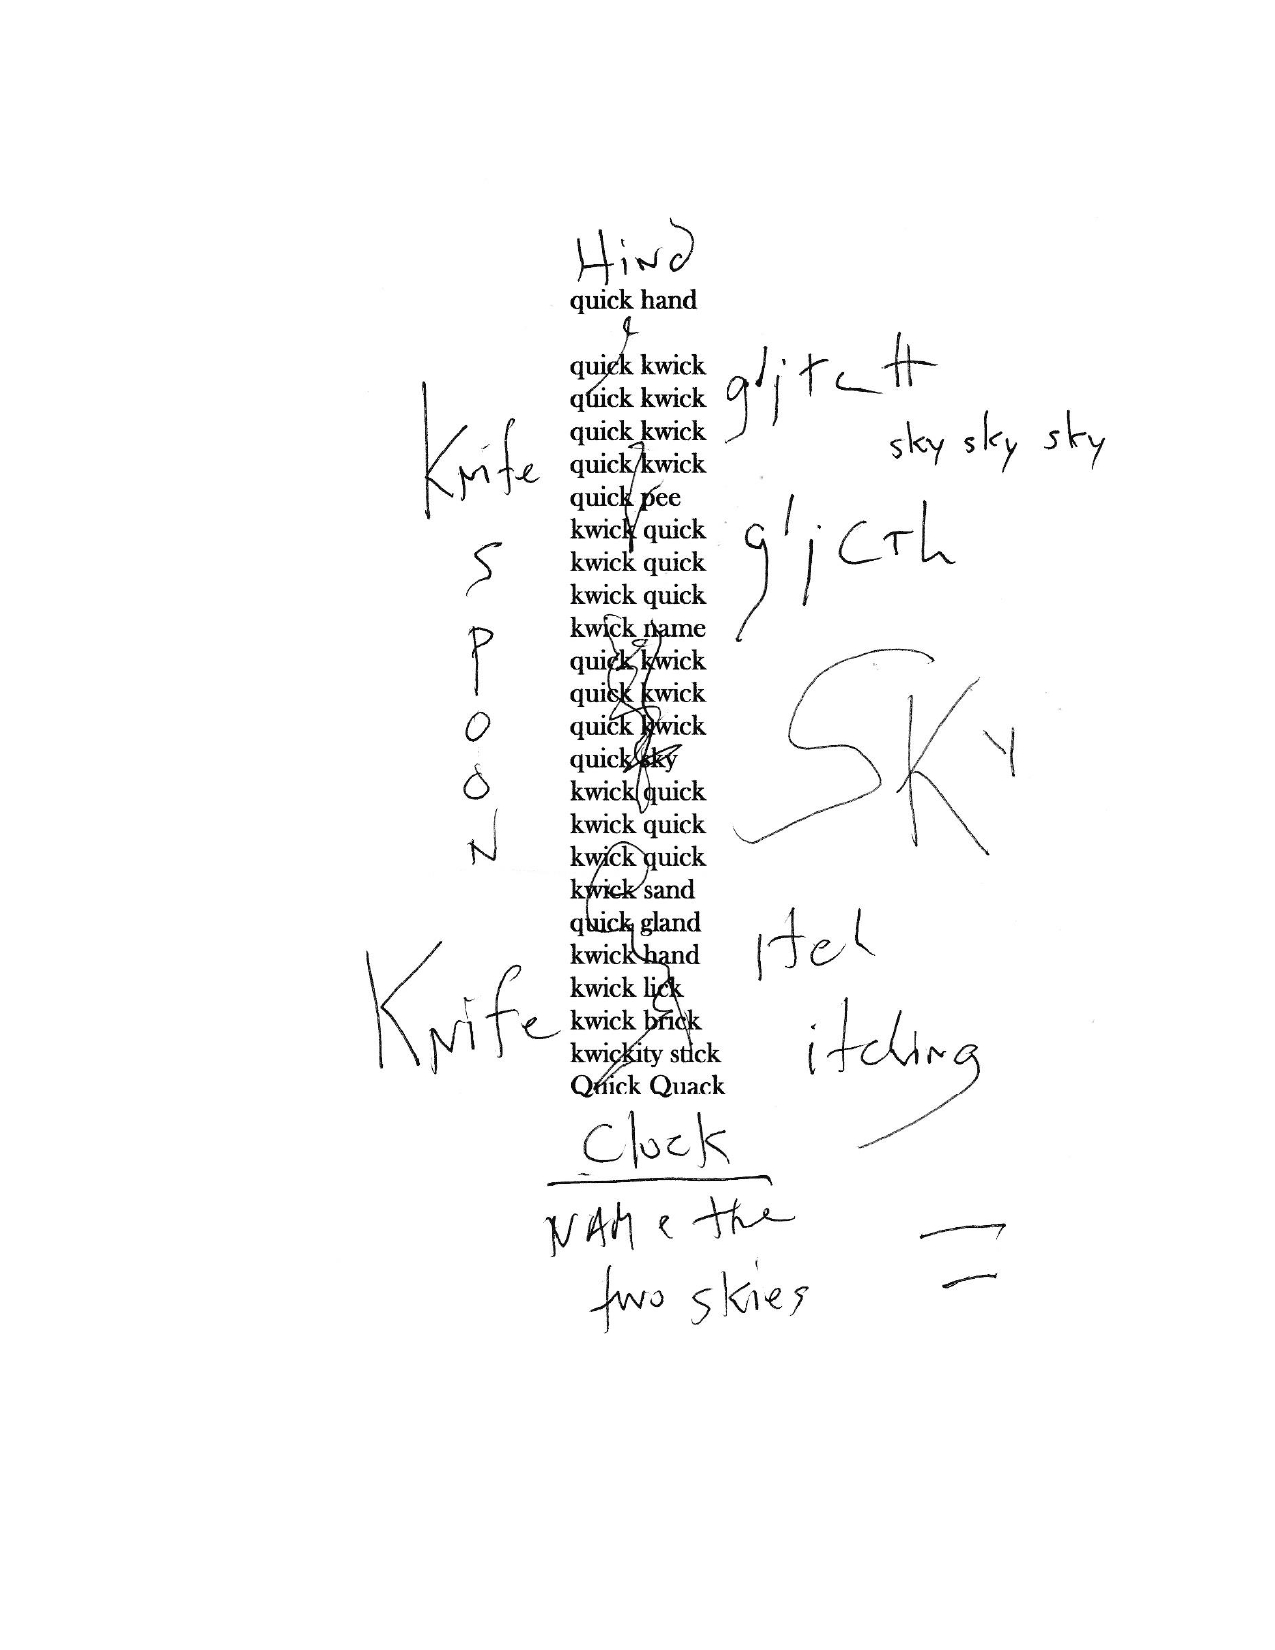 Hind
quick hand
quick kwick
quick kwick
quick kwick
quick kwick
quick pee
kwick quick
kwick quick
kwick quick
kwick name
quick kwick
quick kwick
quick kwick
quick sky
kwick quick
kwick quick
kwick quick
kwick sand
quick gland
kwick hand
kwick lick
kwick brick
kwickity stick
Quick Quack
Knife
S
P
O
O
N
Knife
sky sky sky
SKY
itch
itching
Clock
NAMe the
two skies